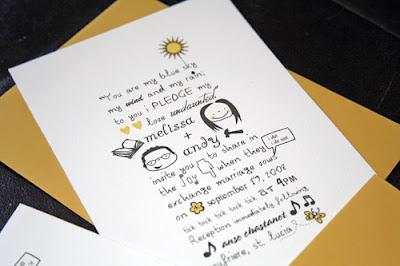 You are my blue sky
my wind and my rain;
to you i PLEDGE my
love undaunted.
melissa
+
andy
i do
i do too
invite you to share in
the JOY when they
exchange marriage vows
on september 17, 2008
tick tock tick tock tick tock AT 4PM
Reception immediately following
anse chastanet
soufriere, st. lucia